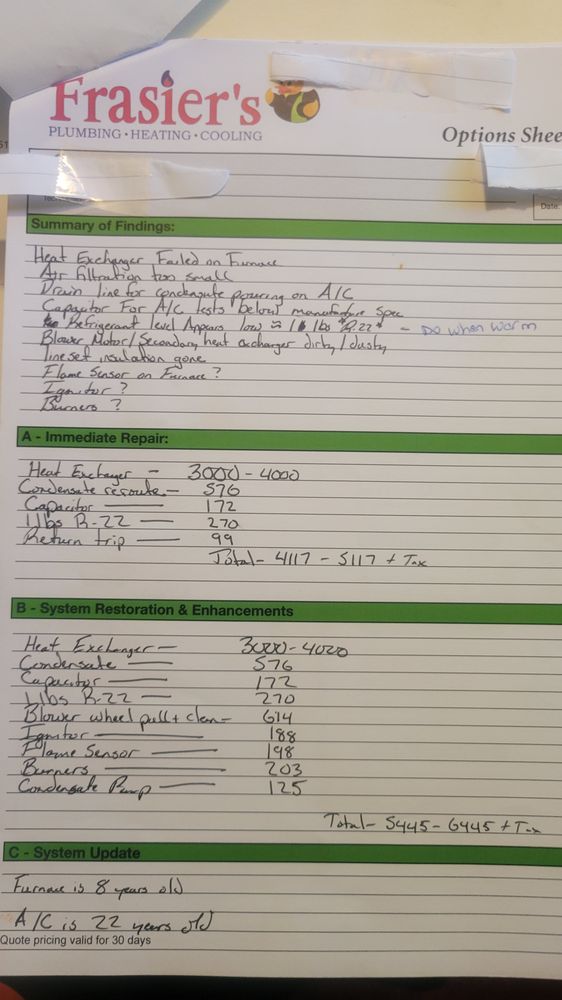 Frasier's
PLUMBING • HEATING • COOLING
Options Shee
Date:
Summary of Findings:
Heat Exchanger Failed on Furnace
Air filtration too small
Drain line for condensate pouring on A/C
Capacitor For A/C tests below manufature spec
Refrigerant level Appears low ≈ 1 lbs *R22* - Do when warm
Blower Motor/Secondary heat exchanger dirty/dusty
lineset insulation gone
Flame Sensor on Furnace?
Ignitor?
Burners?
A - Immediate Repair:
Heat Exchanger - 3000-4000
Condensate reroute - 576
Capacitor - 172
1 lbs R-22 - 270
Return trip - 99
Total - 4117 - 5117 + Tax
B - System Restoration & Enhancements
Heat Exchanger - 3000-4000
Condensate - 576
Capacitor - 172
1 lbs R-22 - 270
Blower wheel pull + clean - 614
Ignitor - 188
Flame Sensor - 198
Burners - 203
Condensate Pump - 125
Total - 5445 - 6445 + Tax
C - System Update
Furnace is 8 years old
A/C is 22 years old
Quote pricing valid for 30 days